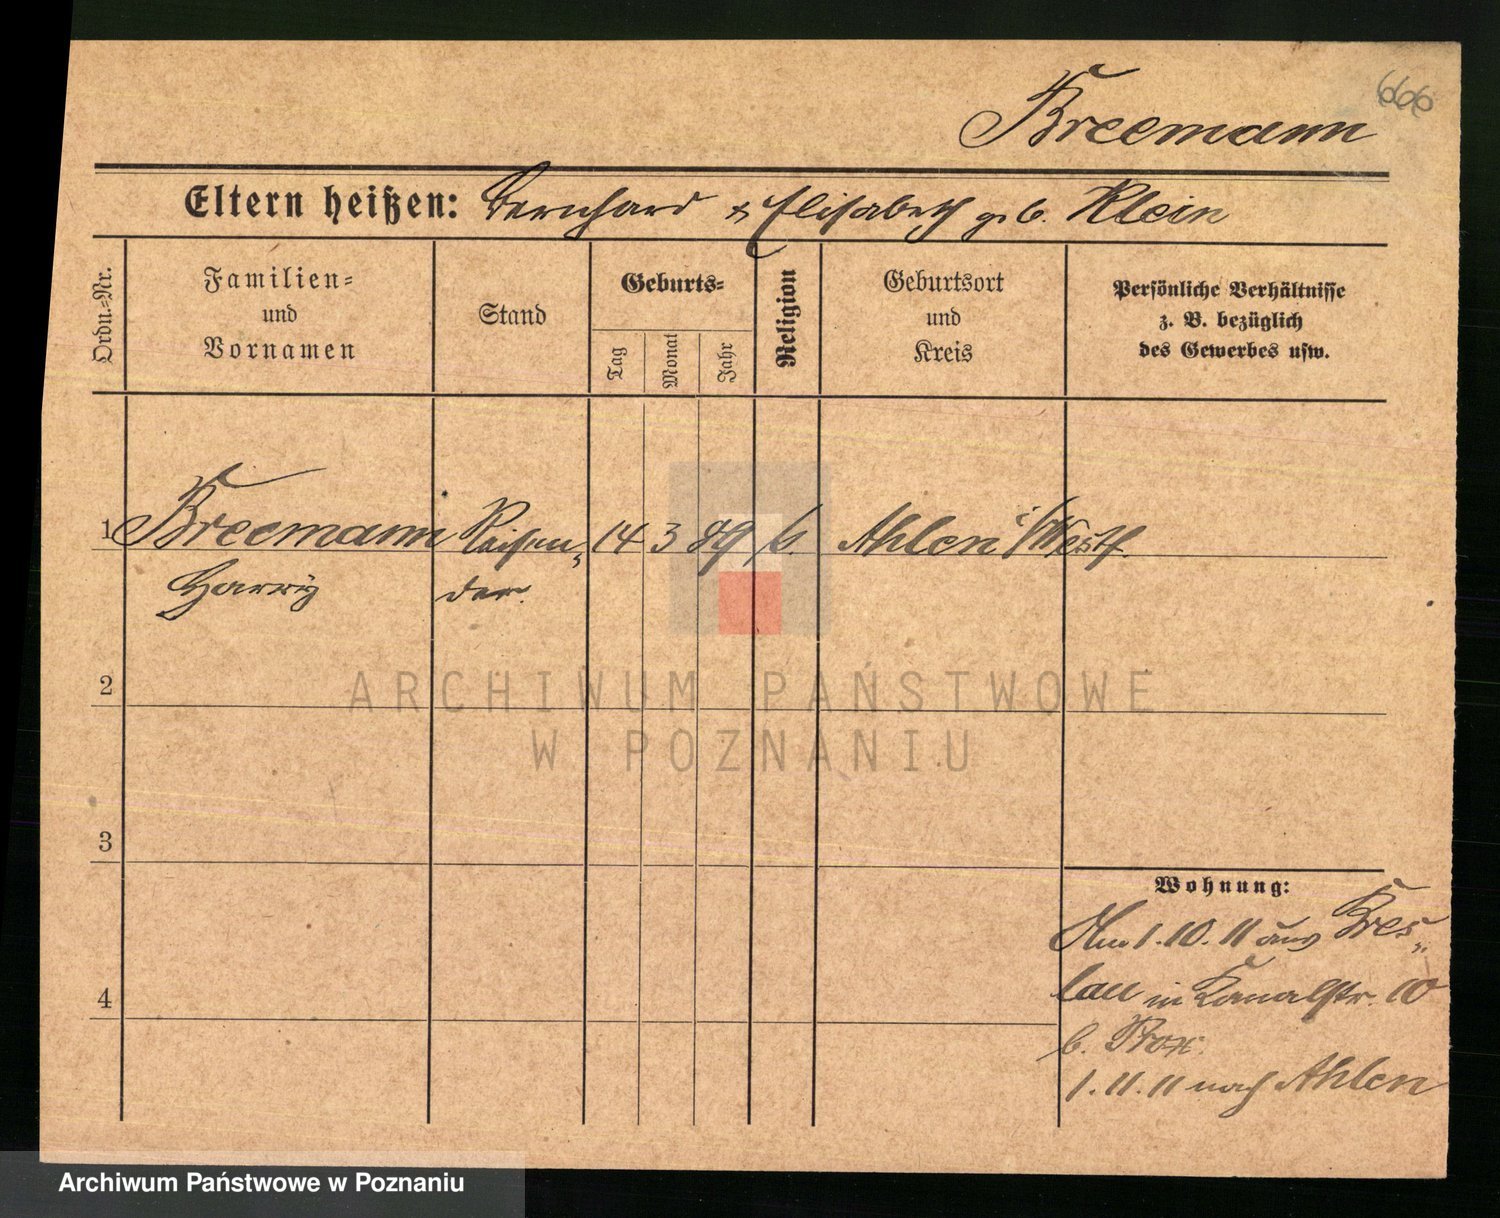 666
Breemann
Eltern heißen: Bernhard & Elisabeth geb. Klein
Ordn.-Nr.
Familien-
und
Vornamen
Stand
Geburts-
Tag
Monat
Jahr
Religion
Geburtsort
und
Kreis
Persönliche Verhältnisse
z. B. bezüglich
des Gewerbes usw.
1 Breemann Reisen- 14 3 89 k. Ahlen i/Westf.
Harry der.
2
ARCHIWUM PAŃSTWOWE
W POZNANIU
3
4
Wohnung:
Am 1.10.11 aus Bres-
lau in Kanalstr. 10
b. Prox.
1.11.11 nach Ahlen
Archiwum Państwowe w Poznaniu